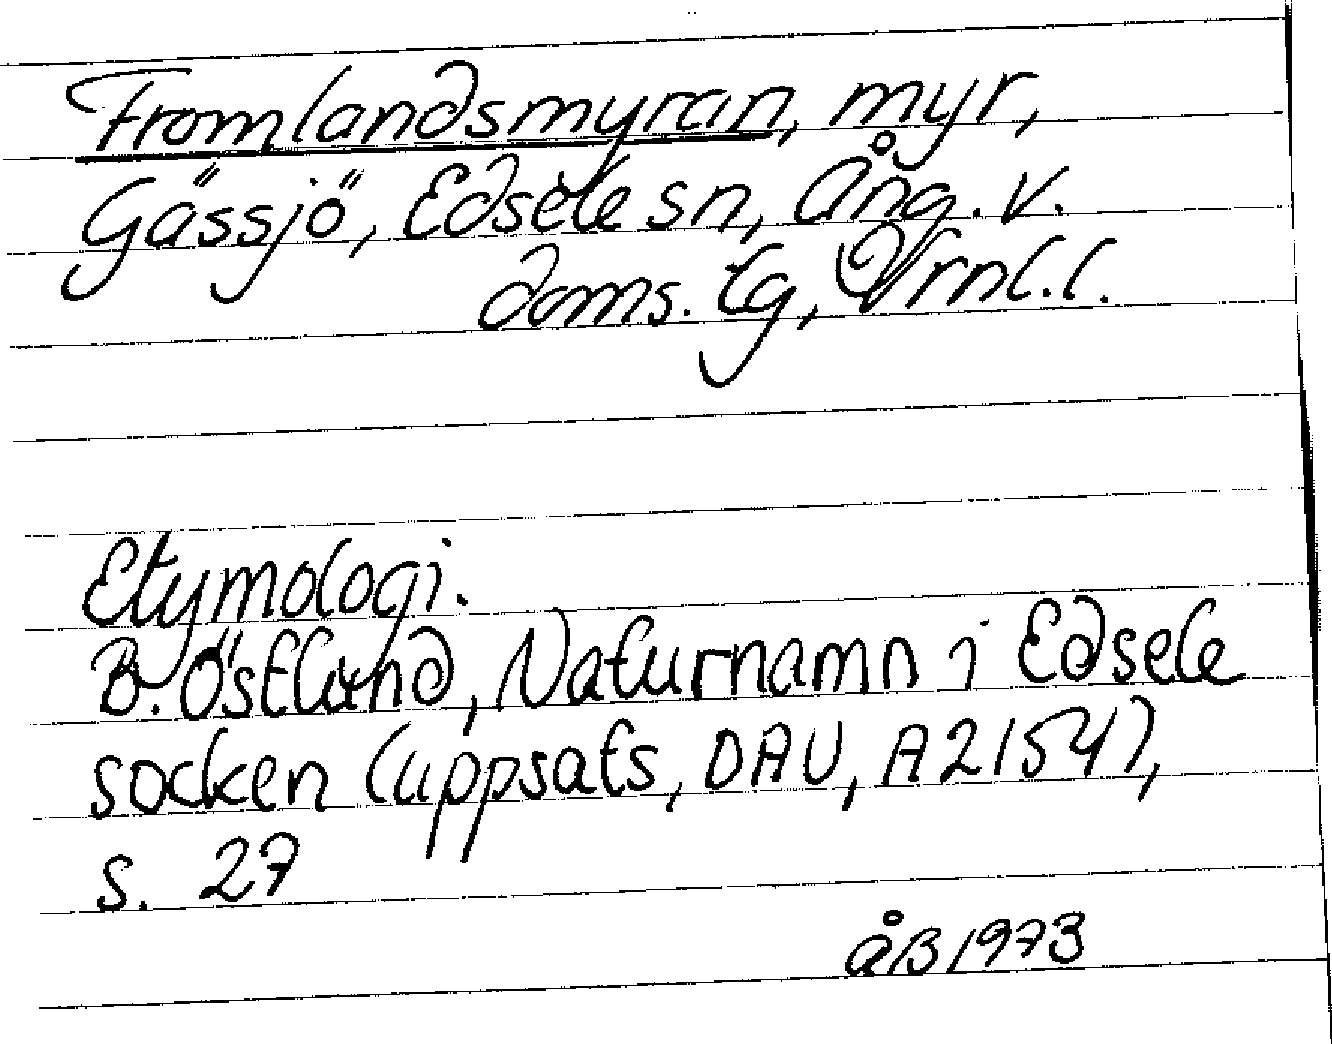 Fromlandsmyran, myr,
Gässjö, Edsele sn, Ång. v.
doms. lg, Vrnl. l.
Etymologi.
B. Östlund, Naturnamn i Edsele
socken (uppsats, DAU, A2154),
s. 27
ÅB 1973